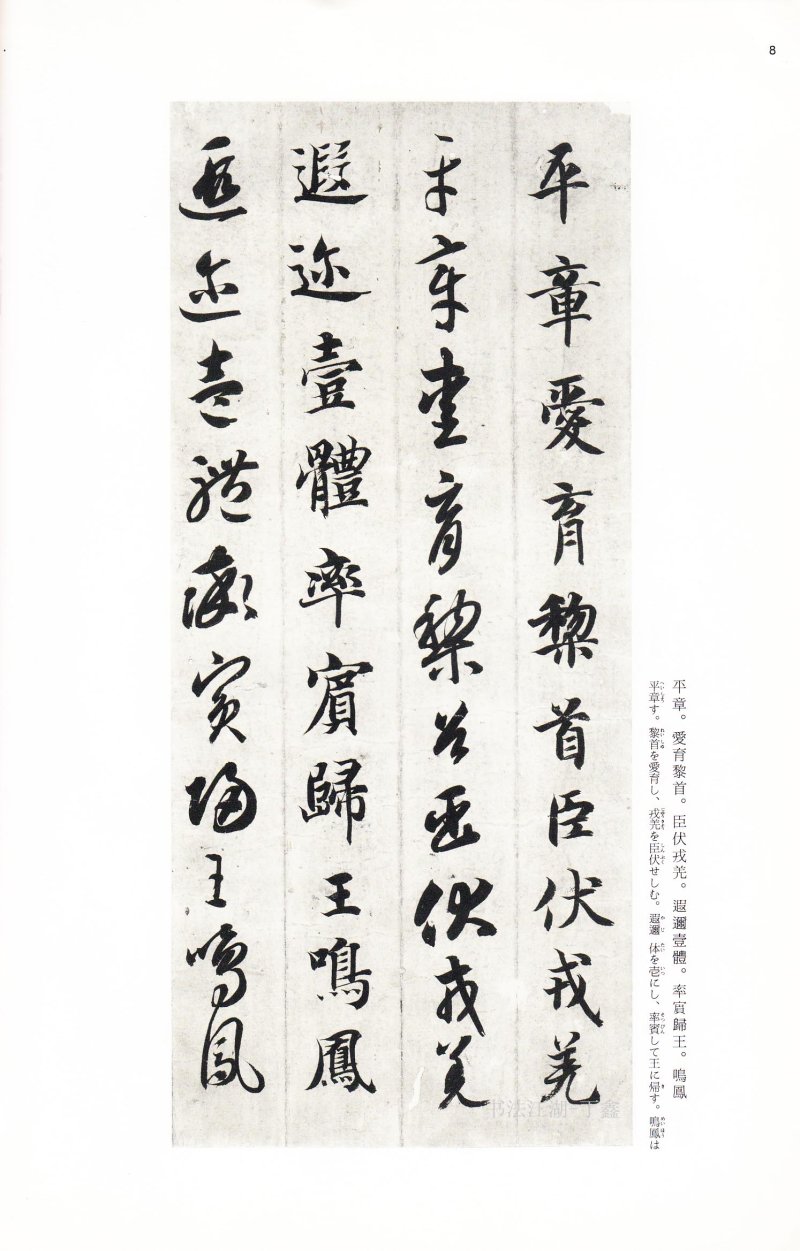 8
平章愛育黎首臣伏戎羌
平章愛育黎首臣伏戎羌
遐迩壹體率賓歸王鳴鳳
遐迩壹體率賓歸王鳴鳳
平章。愛育黎首。臣伏戎羌。遐邇壹體。率賓歸王。鳴鳳
平章す。黎首を愛育し、戎羌を臣伏せしむ。遐邇 体を壱にし、率賓して王に帰す。鳴鳳は
书法江湖-丁鑫